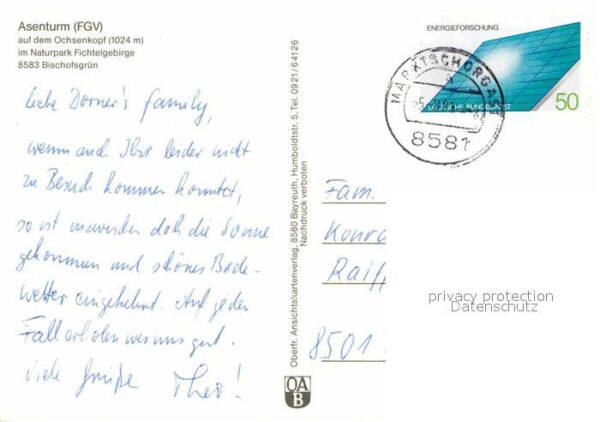 Asenturm (FGV)
auf dem Ochsenkopf (1024 m)
im Naturpark Fichtelgebirge
8583 Bischofsgrün
liebe Dorner's family,
wenn auch Ihr leider nicht
zu Besuch kommen konntet,
so ist inzwischen doch die Sonne
gekommen und schönes Bade-
wetter eingekehrt. Auf jeden
Fall erholen wir uns gut.
Viele Grüße Theo!
Oberfr. Ansichtskartenverlag, 8580 Bayreuth, Humboldtstr. 5, Tel. 0921/64126
Nachdruck verboten
OA
B
ENERGIEFORSCHUNG
DEUTSCHE BUNDESPOST
50
MARKTSCHORGA
8581
Fam.
Konra
Raiff
8501
privacy protection
Datenschutz